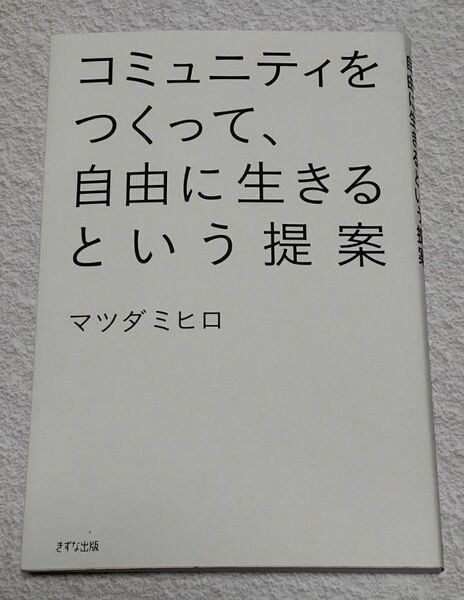 コミュニティを
つくって、
自由に生きる
という提案
マツダミヒロ
きずな出版